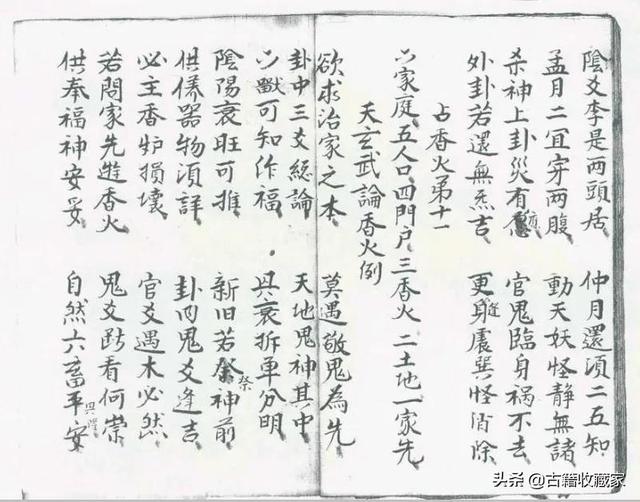 陰爻李是兩頭居 仲月還須二五知
孟月二宜穿兩腹 動天妖怪静無諸
杀神上卦災有 官鬼臨身祸不去
外卦若還無炁吉 更縫身處巽怪消除
占香火弟十一
六家庭五人口四門户三香火二土地一家先
天玄武論香火例
欲求治家之本 莫遇敬鬼為先
卦中三爻総論 天地鬼神其中
六獸可知作福 具衰拆单分明
陰陽衰旺可推 新旧若祭神前
供儀器物須詳 卦内鬼爻逢吉
必主香炉損壞 官爻遇木必然
若問家先進香火 鬼爻断看何祟
供奉福神安妥 自然六畜兴隆平安
头条@古籍收藏家